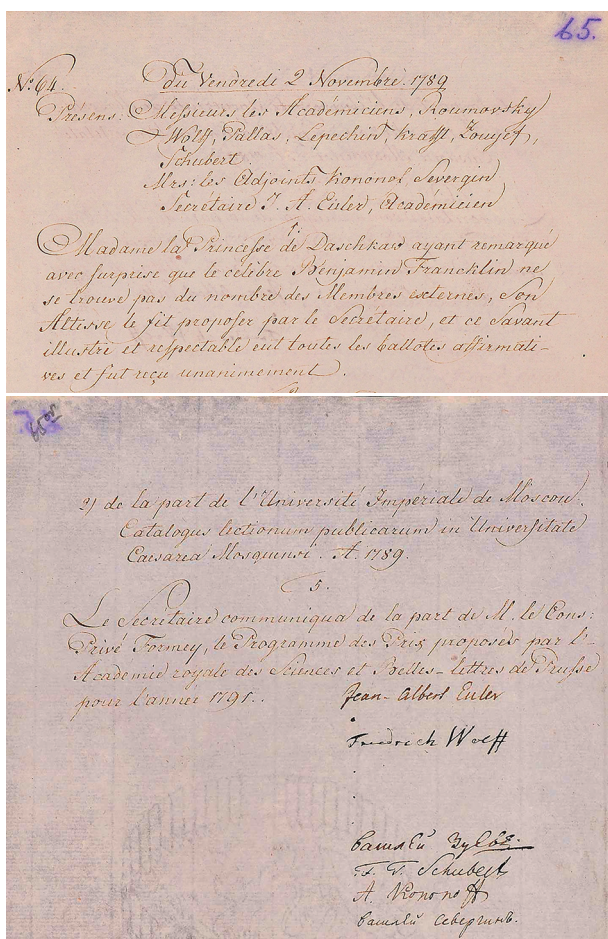 65.
Nº 64. Du Vendredi 2 Novembre. 1789
Présens: Messieurs les Académiciens, Roumovsky
Wolff, Pallas, Lepechin, Krafft, Zoujef,
Schubert
Mrs: les Adjoints Kononof, Severgin
Secrétaire J. A. Euler, Académicien
1.
Madame la Princesse de Daschkaw ayant remarqué
avec surprise que le célébre Benjamin Francklin ne
se trouve pas du nombre des Membres externes, Son
Altesse le fit proposer par le Secrétaire, et ce Savant
illustre et respectable eut toutes les ballotes affirmati-
ves et fut reçu unanimement.
65 об
2) de la part de l'Université Impériale de Moscou.
Catalogus lectionum publicarum in Universitate
Caesarea Mosquensi. A. 1789.
5.
Le Secrétaire communiqua de la part de M. le Cons:
Privé Formey, le Programme des Prix proposés par l'-
Académie royale des Sciences et Belles-lettres de Prusse
pour l'année 1791.
Jean-Albert Euler
Friedrich Wolff
Василей Зуевъ.
F. T. Schubert
A. Kononoff
Василей Севергинъ.